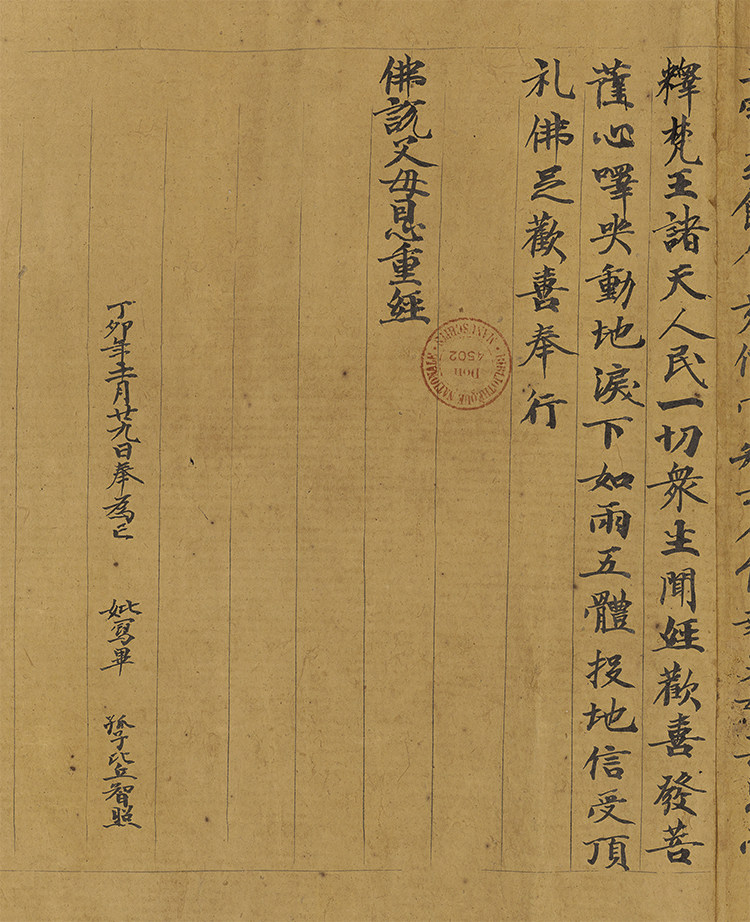 釋梵王諸天人民一切衆生聞經歡喜發菩
薩心嘷哭動地淚下如雨五體投地信受頂
礼佛足歡喜奉行
佛說父母恩重經
丁卯年十一月廿九日奉為亡 妣寫畢 孤子比丘智照
BIBLIOTHÈQUE NATIONALE · MANUSCRITS ·
Don
4502